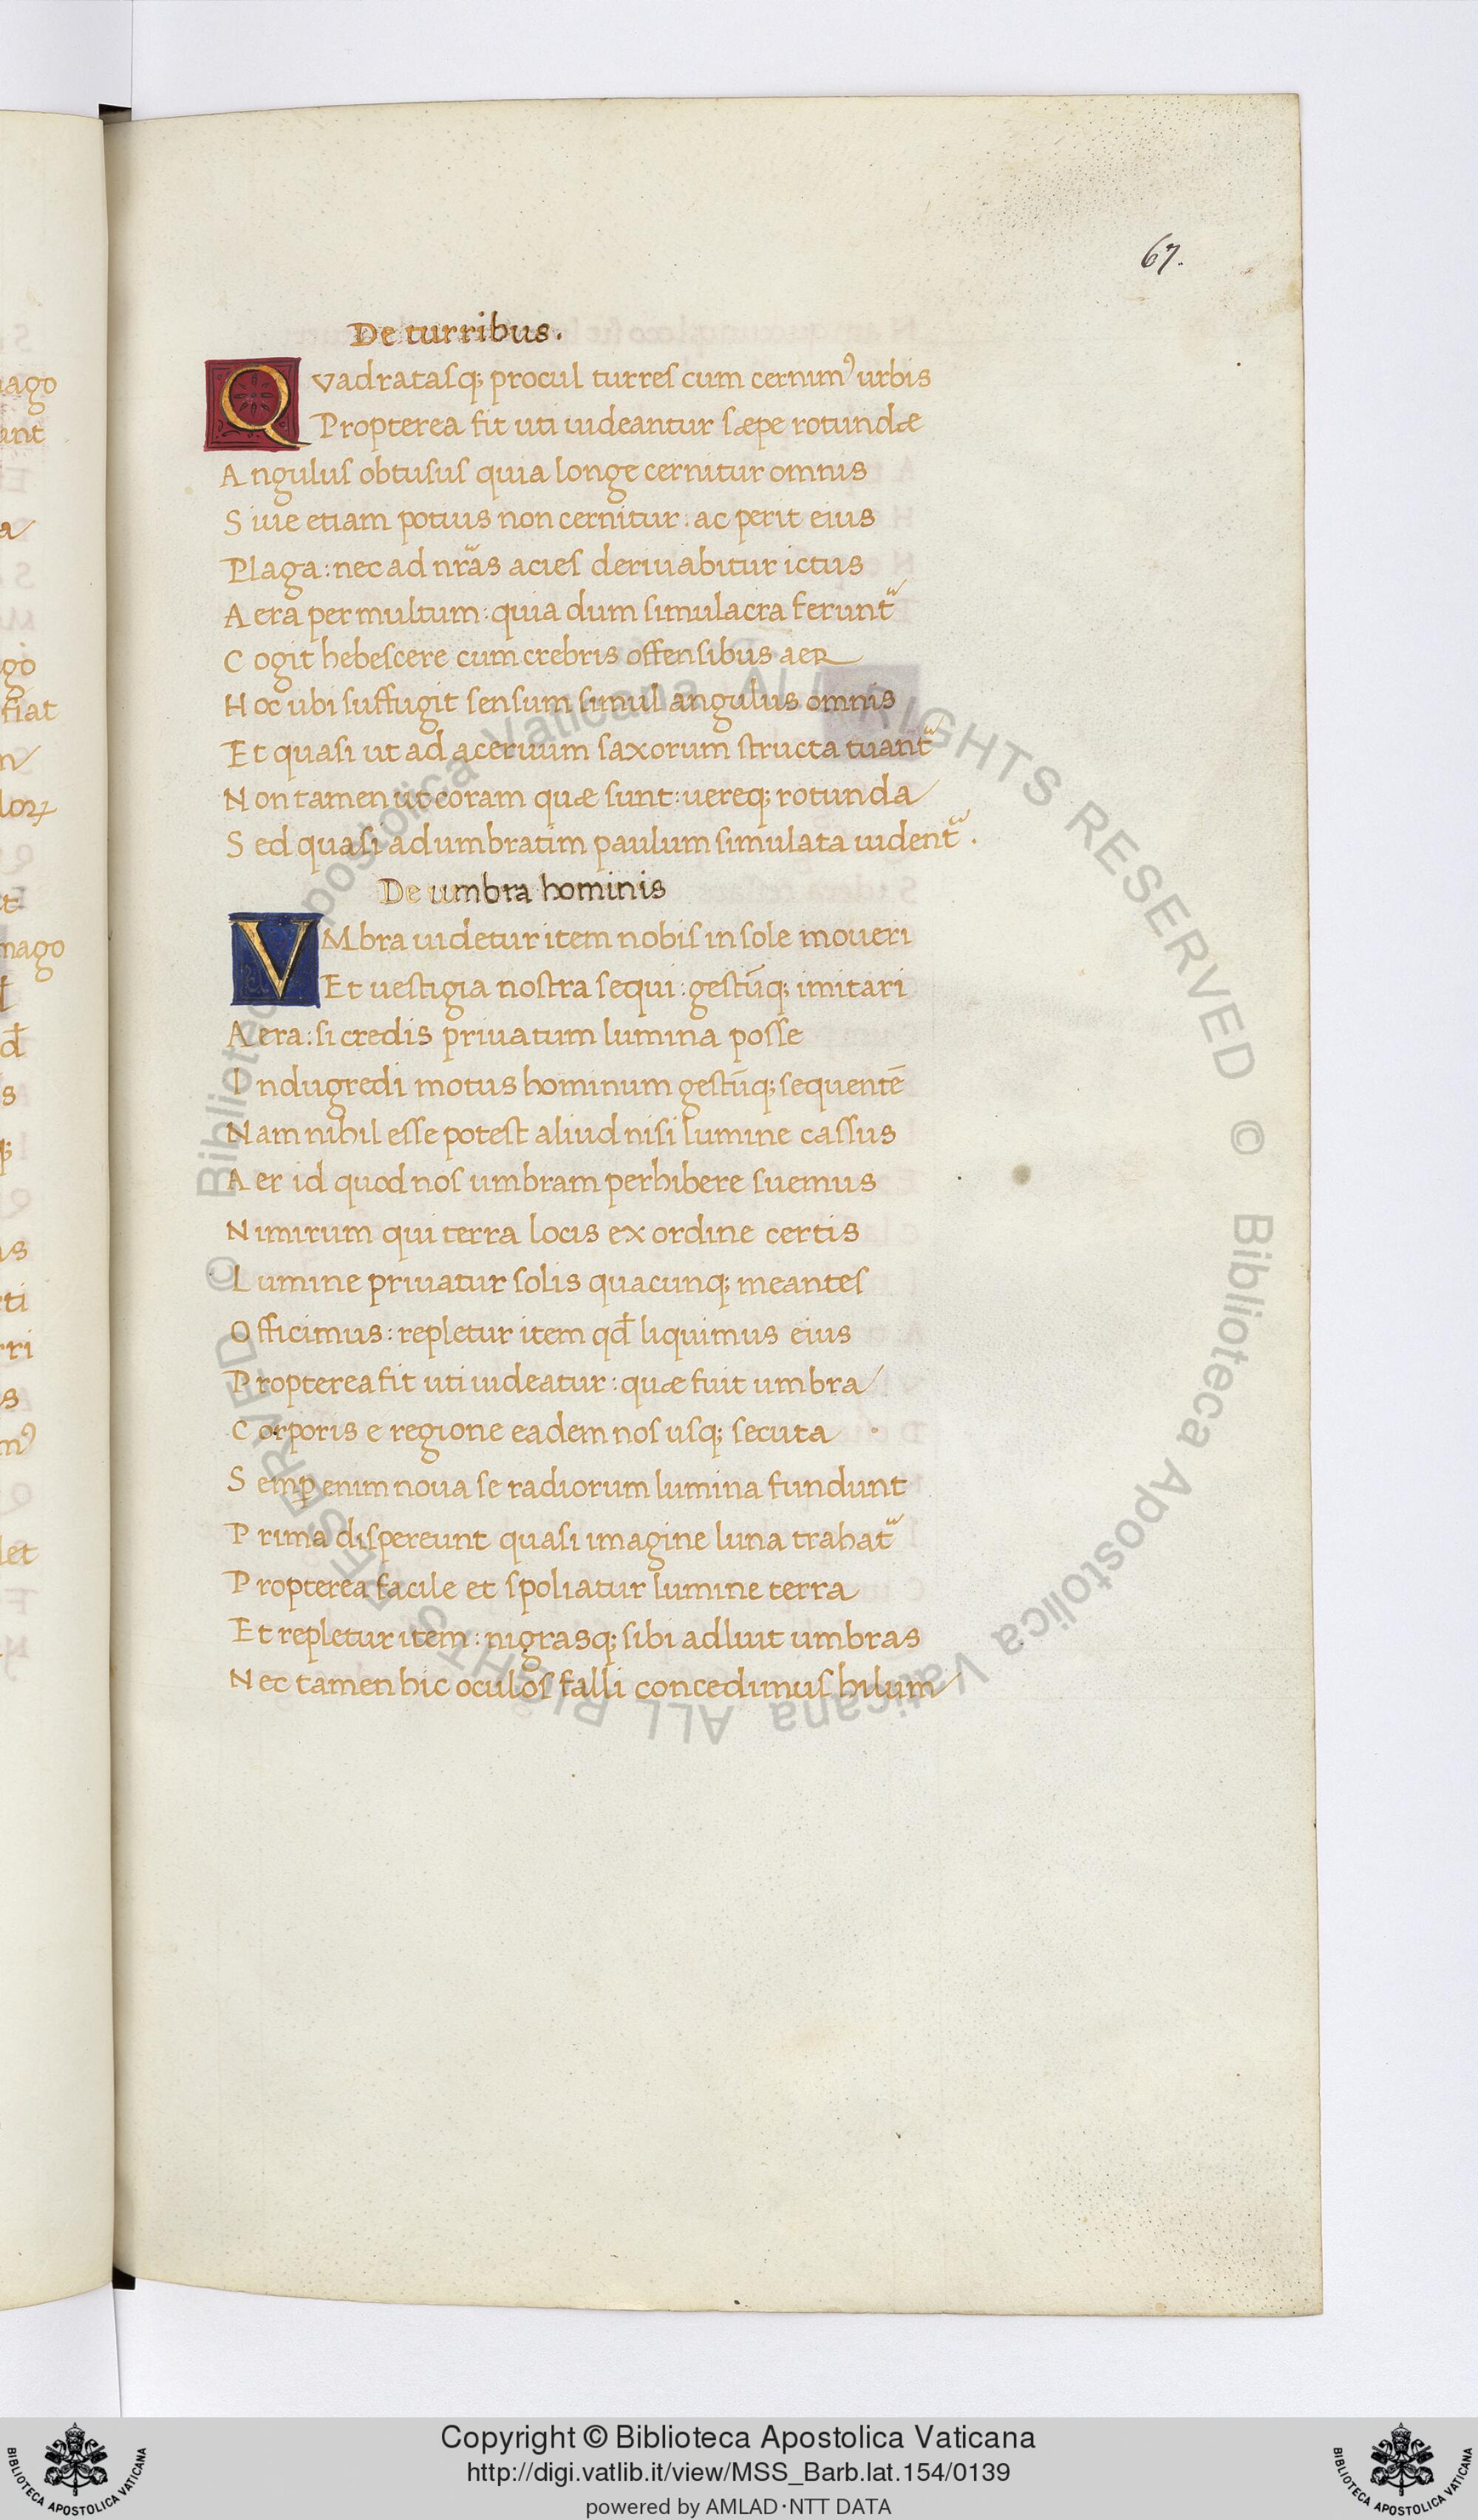 67.
De turribus.
Qvadratasq; procul turres cum cernimꝰ urbis
Propterea fit uti uideantur sæpe rotundæ
Angulus obtusus quia longe cernitur omnis
Siue etiam potius non cernitur: ac perit eius
Plaga: nec ad nr̃as acies deriuabitur ictus
Aera per multum: quia dum simulacra ferunt᷑
Cogit hebescere cum crebris offensibus aer
Hoc ubi suffugit sensum simul angulus omnis
Et quasi ut ad aceruum saxorum structa tuant᷑
Non tamen ut coram quæ sunt: uereq; rotunda
Sed quasi adumbratim paulum simulata uident᷑.
De umbra hominis
VMbra uidetur item nobis in sole moueri
Et uestigia nostra sequi: gestūq; imitari
Aera: si credis priuatum lumina posse
Indugredi motus hominum gestūq; sequentē
Nam nihil esse potest aliud nisi lumine cassus
Aer id quod nos umbram perhibere suemus
Nimirum qui terra locis ex ordine certis
Lumine priuatur solis quacunq; meantes
Officimus: repletur item qđ liquimus eius
Propterea fit uti uideatur: quæ fuit umbra
Corporis e regione eadem nos usq; secuta
Semꝑ enim noua se radiorum lumina fundunt
Prima dispereunt quasi imagine luna trahat᷑
Propterea facile et spoliatur lumine terra
Et repletur item: nigrasq; sibi adluit umbras
Nec tamen hic oculos falli concedimus hilum
© Biblioteca Apostolica Vaticana ALL RIGHTS RESERVED © Biblioteca Apostolica Vaticana ALL RIGHTS RESERVED
Copyright © Biblioteca Apostolica Vaticana
http://digi.vatlib.it/view/MSS_Barb.lat.154/0139
powered by AMLAD·NTT DATA
BIBLIOTECA APOSTOLICA VATICANA
BIBLIOTECA APOSTOLICA VATICANA